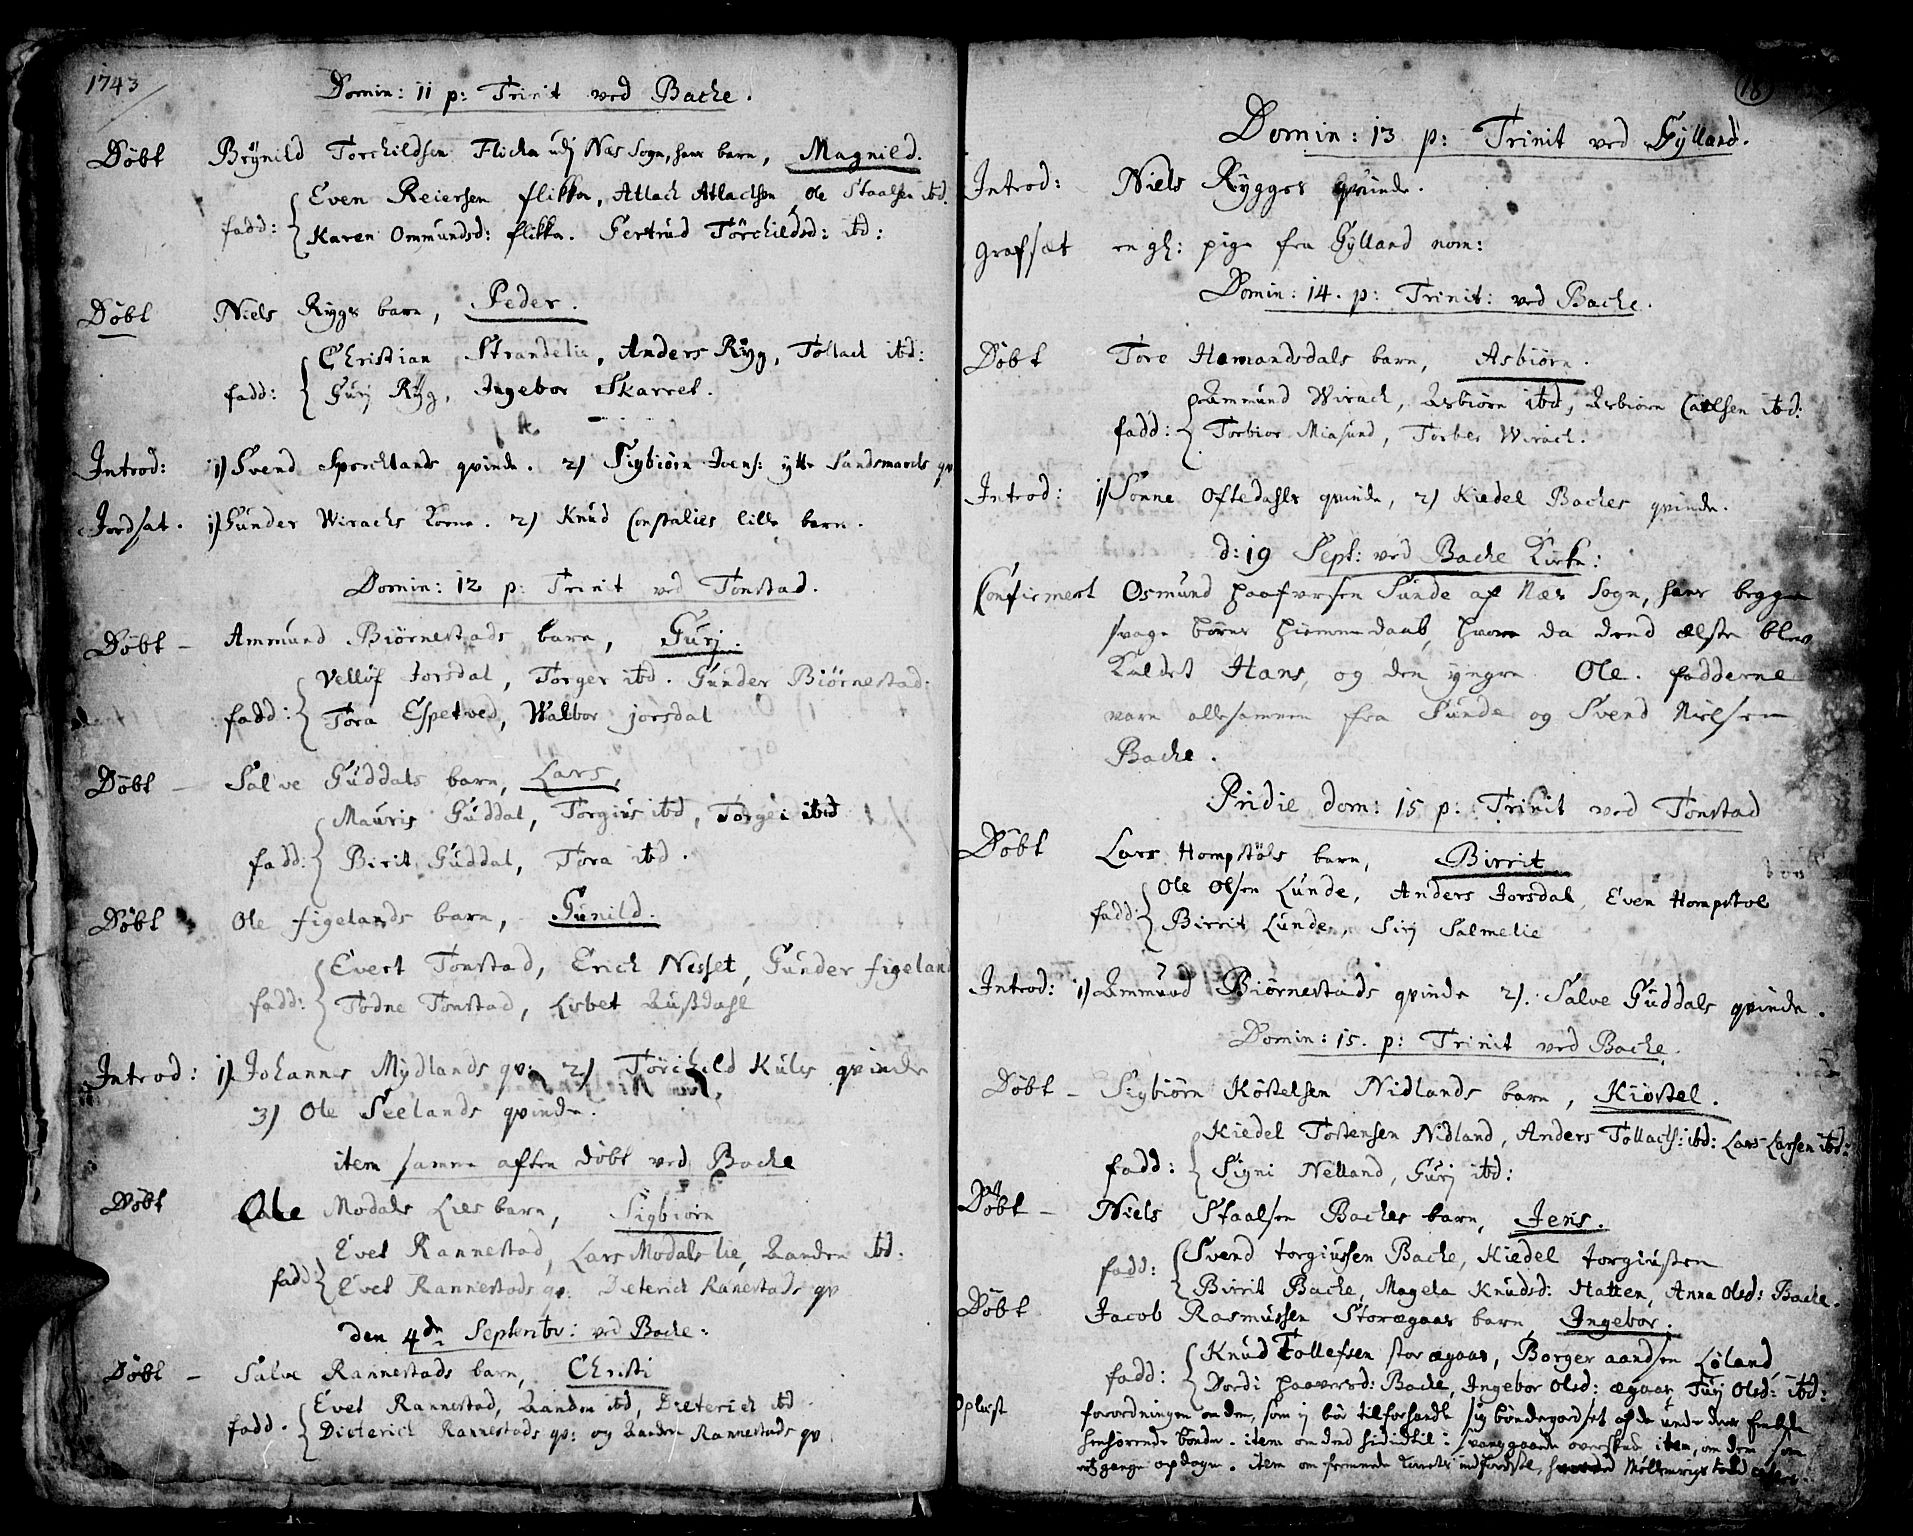 1743
Domin: 11 p: Trinit ved Bache.
Døbt Brÿnild Torchildsen Flicka udj Næs Sogn, hans barn, Magnild.
fadd: Even Reiersen flikka, Atlach Atlachsen, Ole Staalsen ibd.
Karen Ommundsd: flikka. Gertrud Törchildsd: ibd:
Døbt Niels Rygs barn, Peder.
fadd: Christian Strandelie, Anders Rÿg, Tollach ibd:
Gurj Rÿg, Ingebor Skarret.
Introd: 1) Svend Sporchlands qvinde. 2) Sigbiörn Joens: ytte Sandsmarcks qv
Jordsat. 1) Gunder Wirachs Kone. 2) Knud Constalies lille barn.
Domin: 12 p: Trinit ved Tonstad.
Døbt – Ammund Biörnestads barn, Gurj.
fadd: Velluf Jorsdal, Törger ibd. Gunder Biörnestad.
Tora Espetved, Walbor jorsdal
Døbt – Salve Guddals barn, Lars,
fadd: Mauris Guddal, Torgius ibd, Torgei ibid
Birit Guddal, Tora ibd.
Døbt Ole figelands barn, Gunild.
fadd: Evert Tonstad, Erich Nesset, Gunder figeland
Todne Tonstad, Lisbet Lußdahl
Introd: 1) Johannes Mydlands qv: 2) Törchild Kules qvinde
3) Ole Seelands qvinde.
item samme aften döbt ved Bache
Døbt Ole Modals Lies barn, Sigbiörn
fadd: Evel Rannestad, Lars Modals lie, Randen ibd.
Evel Rannestads qv: Dieterich Ranestads qv
den 4de Septembr: ved Bache:
Døbt – Salve Rannestads barn, Christi
fadd. Evel Rannestad, Randen ibd, Dieterich ibd
Dieterich Rannestads qv: og Randen Rannestads qv.
18
Domin: 13 p: Trinit ved Gÿlland.
Introd: Niels Rygges qvinde.
Grafsæt en gl: pige fra Gÿlland nom:
Domin: 14. p: Trinit: ved Bache.
Døbt Tore Hamandsdals barn, Asbiörn.
fadd: Ammund Wirach, Asbiörn ibd, Asbiörn Carlsen ibd:
Torbior Miasund, Torber Wirach.
Introd: 1) Sönne Oftedahls qvinde, 2) Kiedel Baches qvinde.
d: 19 Sept: ved Bache Kirke:
Confirmert Osmund Paafversen Sunde af Næs Sogn, hans begge
svage börns hiemmedaab, hvore da dend ælste blev
Kaldet Hans, og den yngre Ole. fadderne
vare allesammen fra Sunde og Svend Nielsen
Bache.
Pridie dom: 15 p: Trinit ved Tonstad
Døbt Lars Hompstöls barn, Birrit
fadd: Ole Olsen Lunde, Anders Jorsdal, Even Hompstol
Birrit Lunde, Sirj Salmelie
Introd: 1) Ammund Biörnestads qvinde 2). Salve Guddals qvinde.
Domin: 15. p: Trinit ved Bache.
Døbt – Sigbiörn Köstelsen Nidlands barn, Kiöstel.
fadd: Kiedel Tostensen Nidland, Anders Tollachs: ibd: Lars Larsen ibd:
Signi Nelland, Gurj ibd:
Døbt – Niels Staalsen Baches barn, Jens.
fadd: Svend torgiussen Bache, Kiedel torgiussen
Birrit Bache, Magela Knudsd: Hatten, Anna Olsd: Bache.
Døbt Jacob Rasmussen Storægaas barn, Ingebor.
fadd: Knud Tollefsen storægaas, Borger aandsen Löland,
Dordi paaversd: Bache, Ingebor Olsd: ægaas, Turj Olsd: ibd:
Oplæst forordningen om dem, som ej bör tilforhandle sig böndegodset af de under deres Embede
henhörende bönder. item om dend hidindtil svansgaaende item, om dem som
item om fremmede